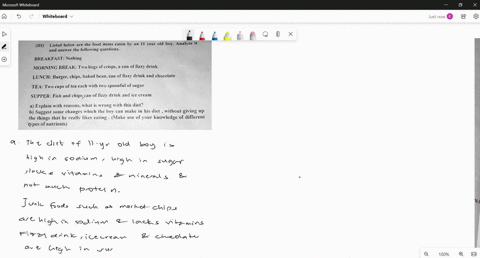 Microsoft Whiteboard
Whiteboard
Just now
(III) Listed below are the food items eaten by an 11 year old boy. Analyze it
and answer the following questions.
BREAKFAST: Nothing
MORNING BREAK: Two bags of crisps, a can of fizzy drink.
LUNCH: Burger, chips, baked bean, can of fizzy drink and chocolate
TEA: Two cups of tea each with two spoonful of sugar
SUPPER: Fish and chips, can of fizzy drink and ice cream
a) Explain with reasons, what is wrong with this diet?
b) Suggest some changes which the boy can make in his diet , without giving up
the things that he really likes eating . (Make use of your knowledge of different
types of nutrients)
a. The diet of 11-yr old boy is
high in sodium, high in sugar
lacks vitamins & minerals &
not much protein.
Junk foods such as market chips
are high in sodium & lacks vitamins
Fizzy drink, icecream & chocolate
are high in su
100%